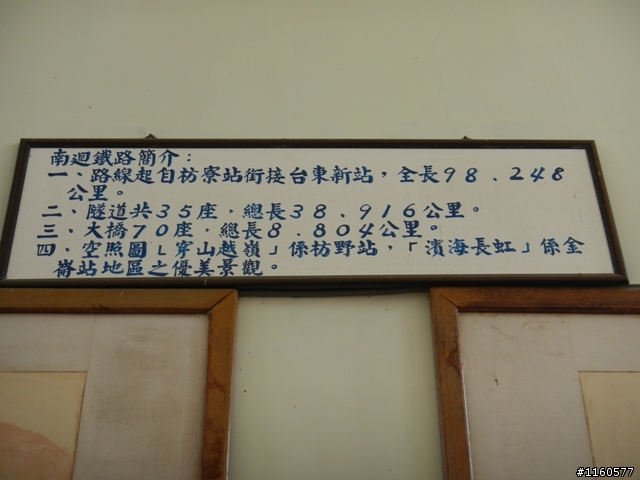 南迴鐵路簡介：
一、路線起自枋寮站銜接台東新站，全長98.248
公里。
二、隧道共35座，總長38.916公里。
三、大橋70座，總長8.804公里。
四、空照圖「穿山越嶺」係枋野站，「濱海長虹」係金
崙站地區之優美景觀。
#1160577